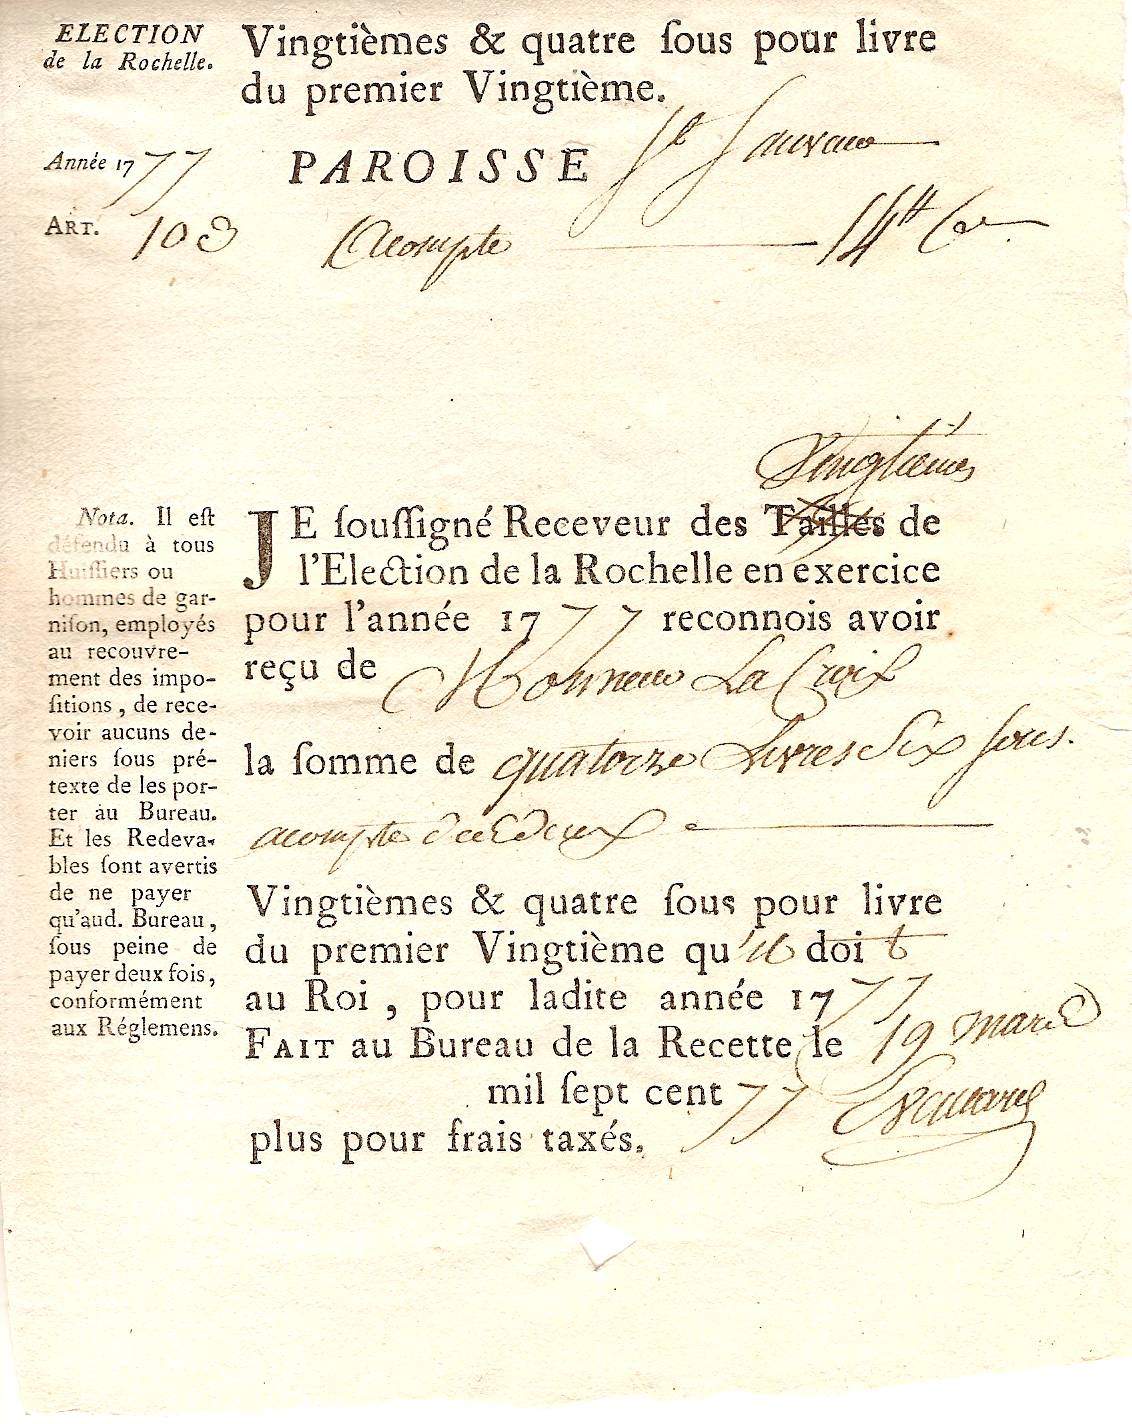 ELECTION
de la Rochelle.
Vingtièmes & quatre ſous pour livre
du premier Vingtième.
Année 1777
PAROISSE St Sauveur
ART. 103
Acompte 14tt 6s
Vingtièmes
Nota. Il eſt
défendu à tous
Huiſſiers ou
hommes de gar-
niſon, employés
au recouvre-
ment des impo-
ſitions, de rece-
voir aucuns de-
niers ſous pré-
texte de les por-
ter au Bureau.
Et les Redeva-
bles ſont avertis
de ne payer
qu'aud. Bureau,
ſous peine de
payer deux fois,
conformément
aux Réglemens.
JE ſouſſigné Receveur des Tailles de
l'Election de la Rochelle en exercice
pour l'année 1777 reconnois avoir
reçu de Monsieur La Croix
la ſomme de quatorze Livres Six sous.
acompte des deux
Vingtièmes & quatre ſous pour livre
du premier Vingtième qu'il doit
au Roi, pour ladite année 1777
FAIT au Bureau de la Recette le 19 mars
mil ſept cent 77
plus pour frais taxés.